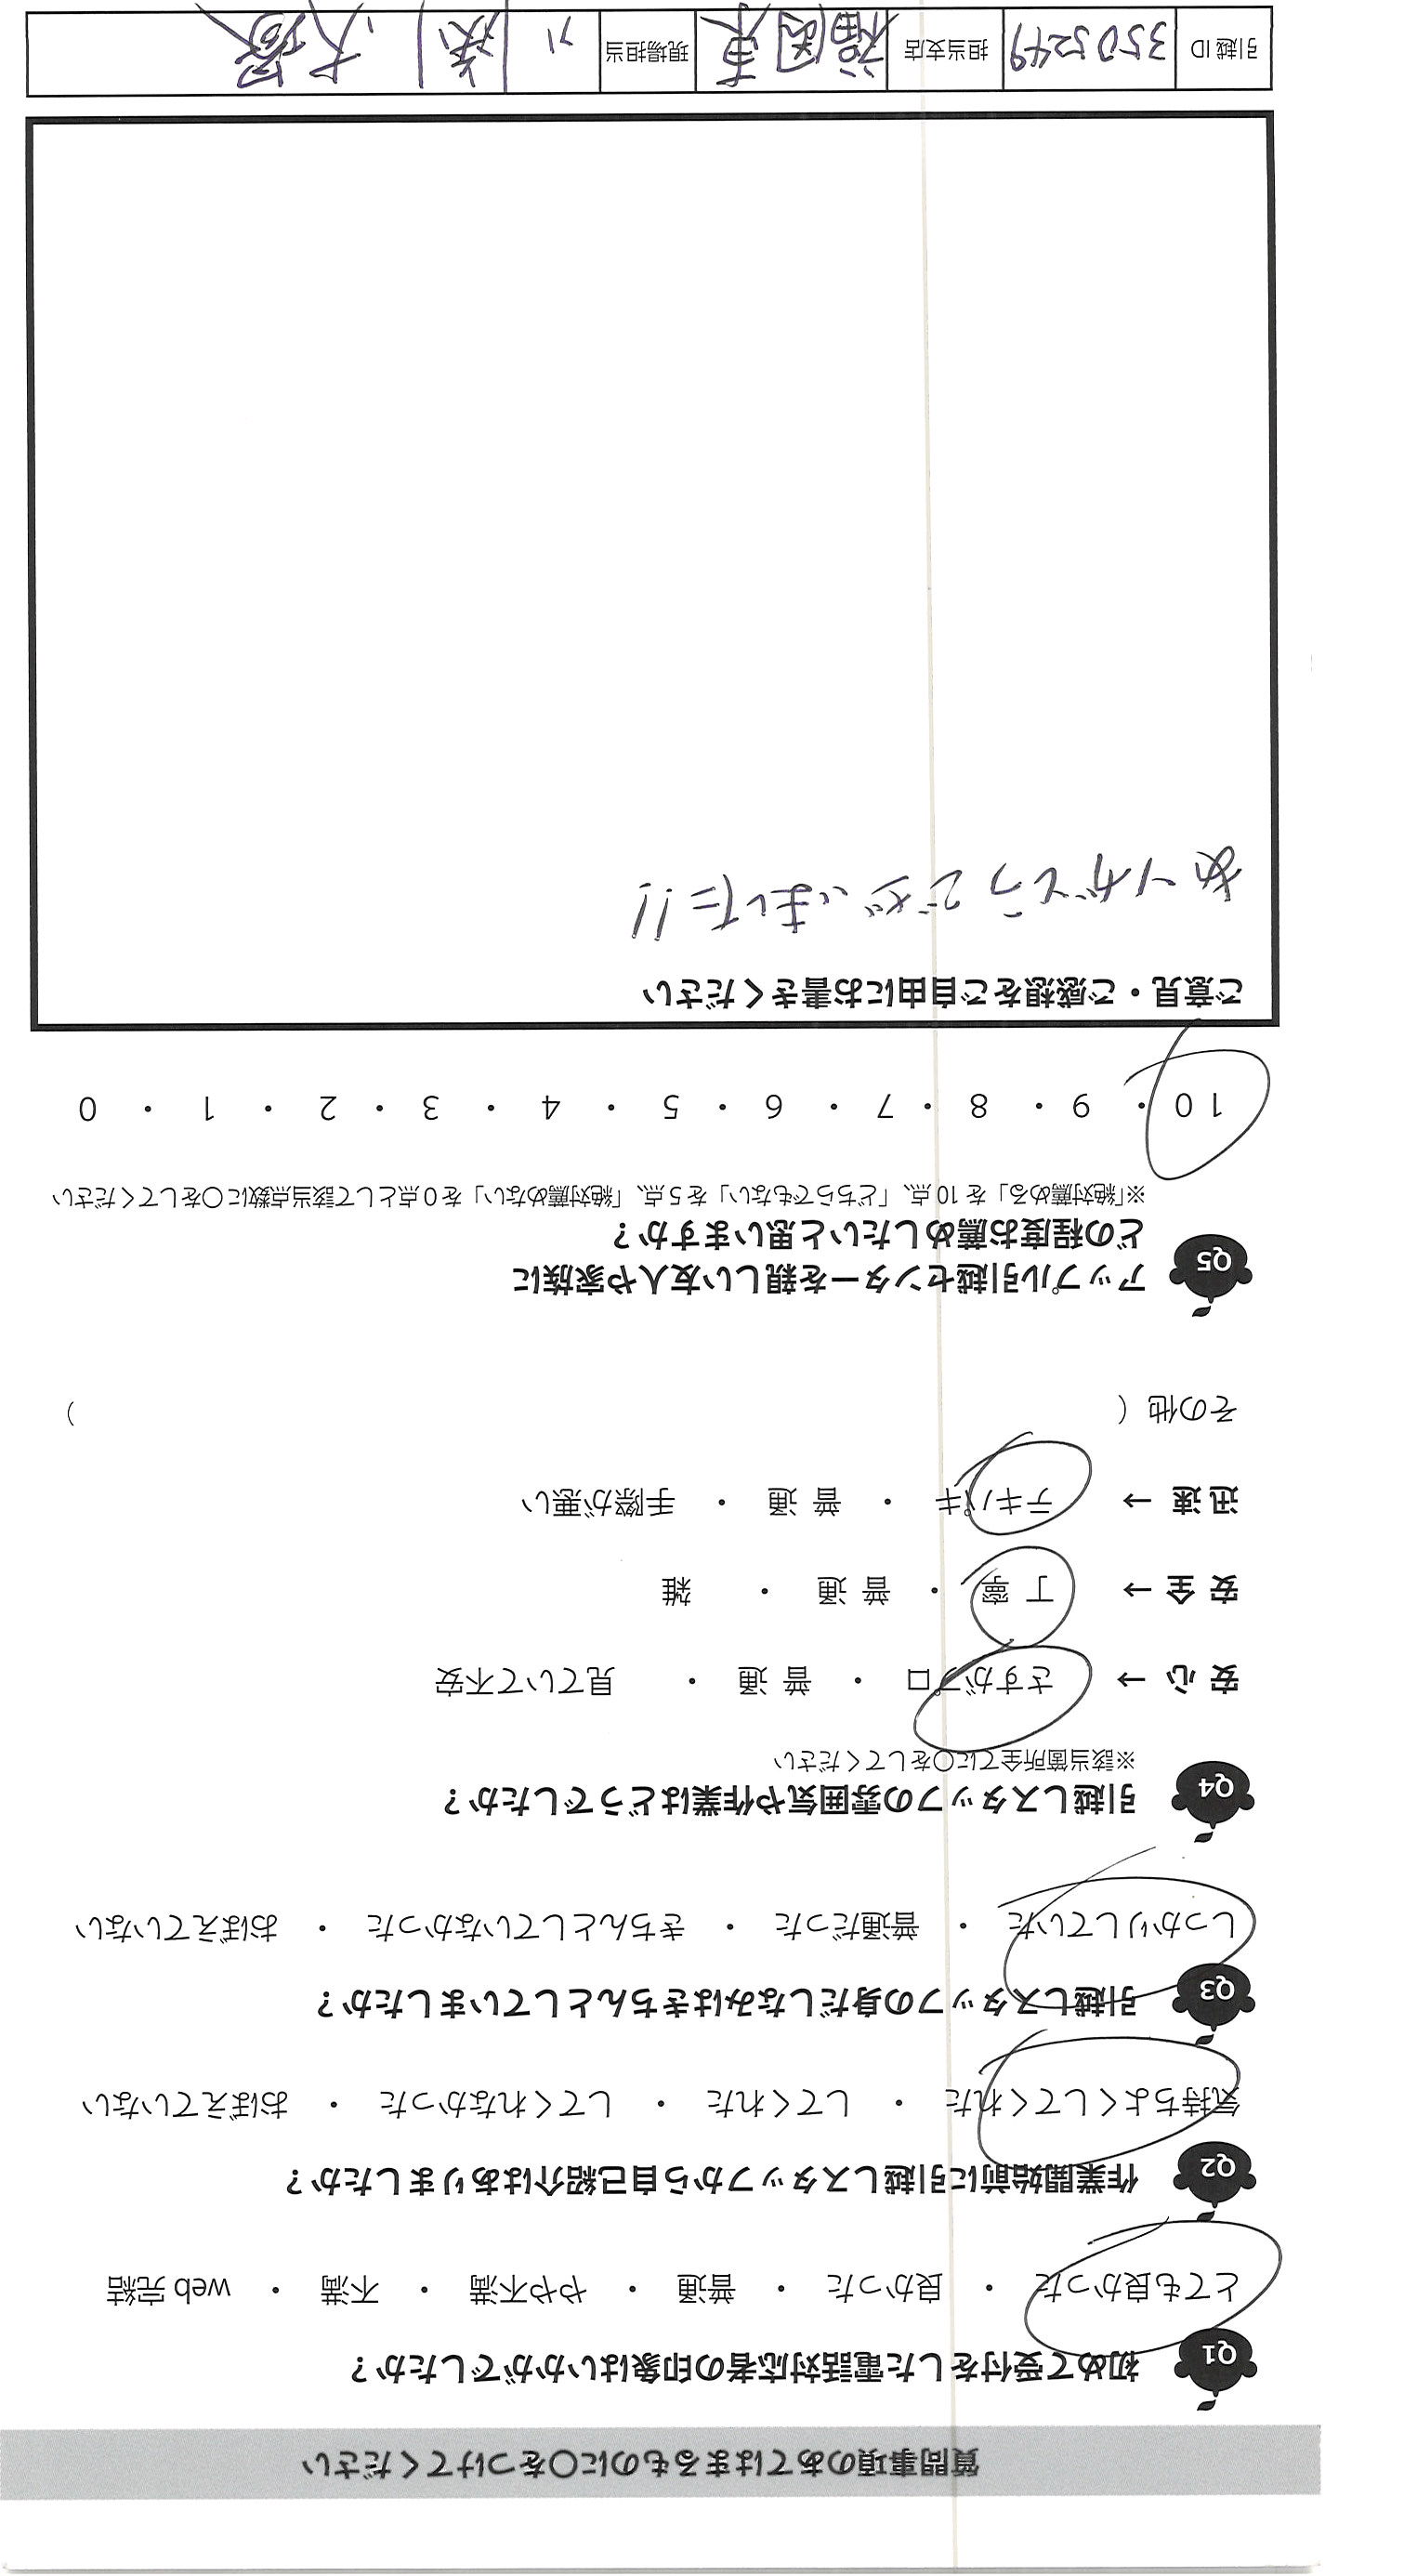 質問事項のあてはまるものに〇をつけてください
Q1 初めて受付をした電話対応者の印象はいかがでしたか？
とても良かった ・ 良かった ・ 普通 ・ やや不満 ・ 不満 ・ web 完結
Q2 作業開始前に引越しスタッフから自己紹介はありましたか？
気持ちよくしてくれた ・ してくれた ・ してくれなかった ・ おぼえていない
Q3 引越しスタッフの身だしなみはきちんとしていましたか？
しっかりしていた ・ 普通だった ・ きちんとしていなかった ・ おぼえていない
Q4 引越しスタッフの雰囲気や作業はどうでしたか？
※該当箇所全てに〇をしてください
安 心 → さすがプロ ・ 普 通 ・ 見ていて不安
安 全 → 丁 寧 ・ 普 通 ・ 雑
迅 速 → テキパキ ・ 普 通 ・ 手際が悪い
その他（ ）
Q5 アップル引越センターを親しい友人や家族に
どの程度お薦めしたいと思いますか？
※「絶対薦める」を 10 点、「どちらでもない」を 5 点、「絶対薦めない」を 0 点として該当点数に〇をしてください
10 ・ 9 ・ 8 ・ 7 ・ 6 ・ 5 ・ 4 ・ 3 ・ 2 ・ 1 ・ 0
ご意見・ご感想をご自由にお書きください
ありがとうございました!!
引越 ID 3505249 担当支店 福岡東 現場担当